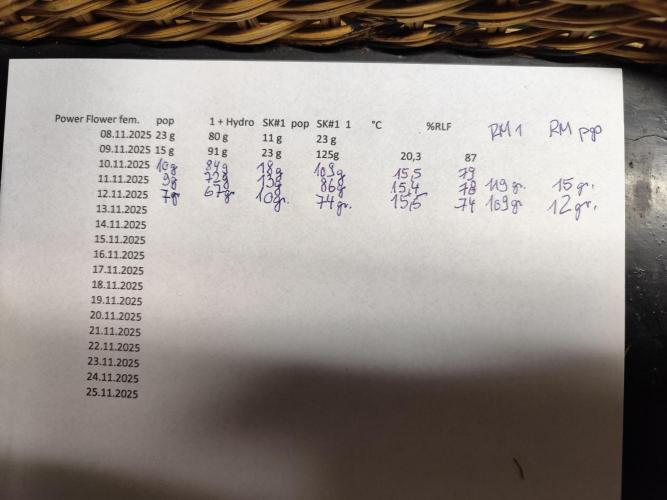 Power Flower fem. pop 1 + Hydro SK#1 pop SK#1 1 °C %RLF RM 1 RM pop
08.11.2025 23 g 80 g 11 g 23 g
09.11.2025 15 g 91 g 23 g 125g 20,3 87
10.11.2025 10g 84g 18g 109g 15,5 79
11.11.2025 9g 72g 13g 86g 15,4 78 119 gr. 15 gr.
12.11.2025 7g 67gr 10gr. 74gr. 15,5 74 109gr 12gr.
13.11.2025
14.11.2025
15.11.2025
16.11.2025
17.11.2025
18.11.2025
19.11.2025
20.11.2025
21.11.2025
22.11.2025
23.11.2025
24.11.2025
25.11.2025